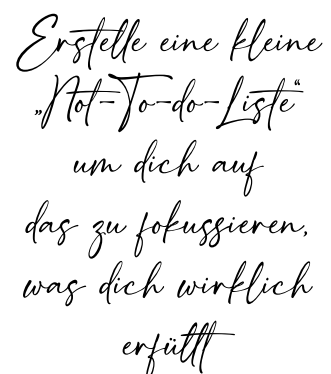 Erstelle eine kleine
„Not-To-do-Liste“
um dich auf
das zu fokussieren,
was dich wirklich
erfüllt